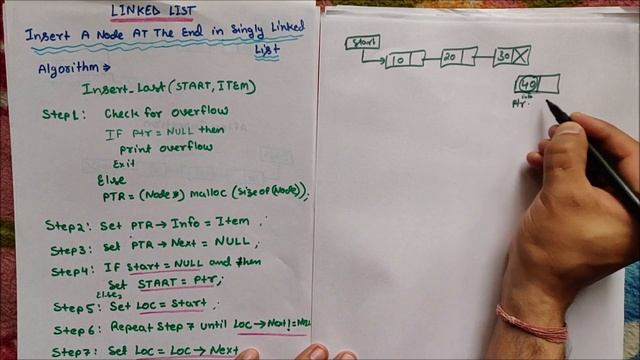 LINKED LIST
Insert A Node At The End in Singly Linked
List
Algorithm →
Insert_Last (START, ITEM)
Step1: Check for overflow
IF Ptr = NULL then
print overflow
Exit
Else
PTR = (Node *) malloc (size of (Node));
Step2: Set PTR → Info = Item ;
Step3: Set PTR → Next = NULL ;
Step4: IF Start = NULL and then
Set START = Ptr ;
Else,
Step5: Set LOC = Start ;
Step 6: Repeat Step 7 until LOC → Next != NULL
Step7: Set LOC = LOC → Next
Start
10 20 30 X
40
info
Ptr